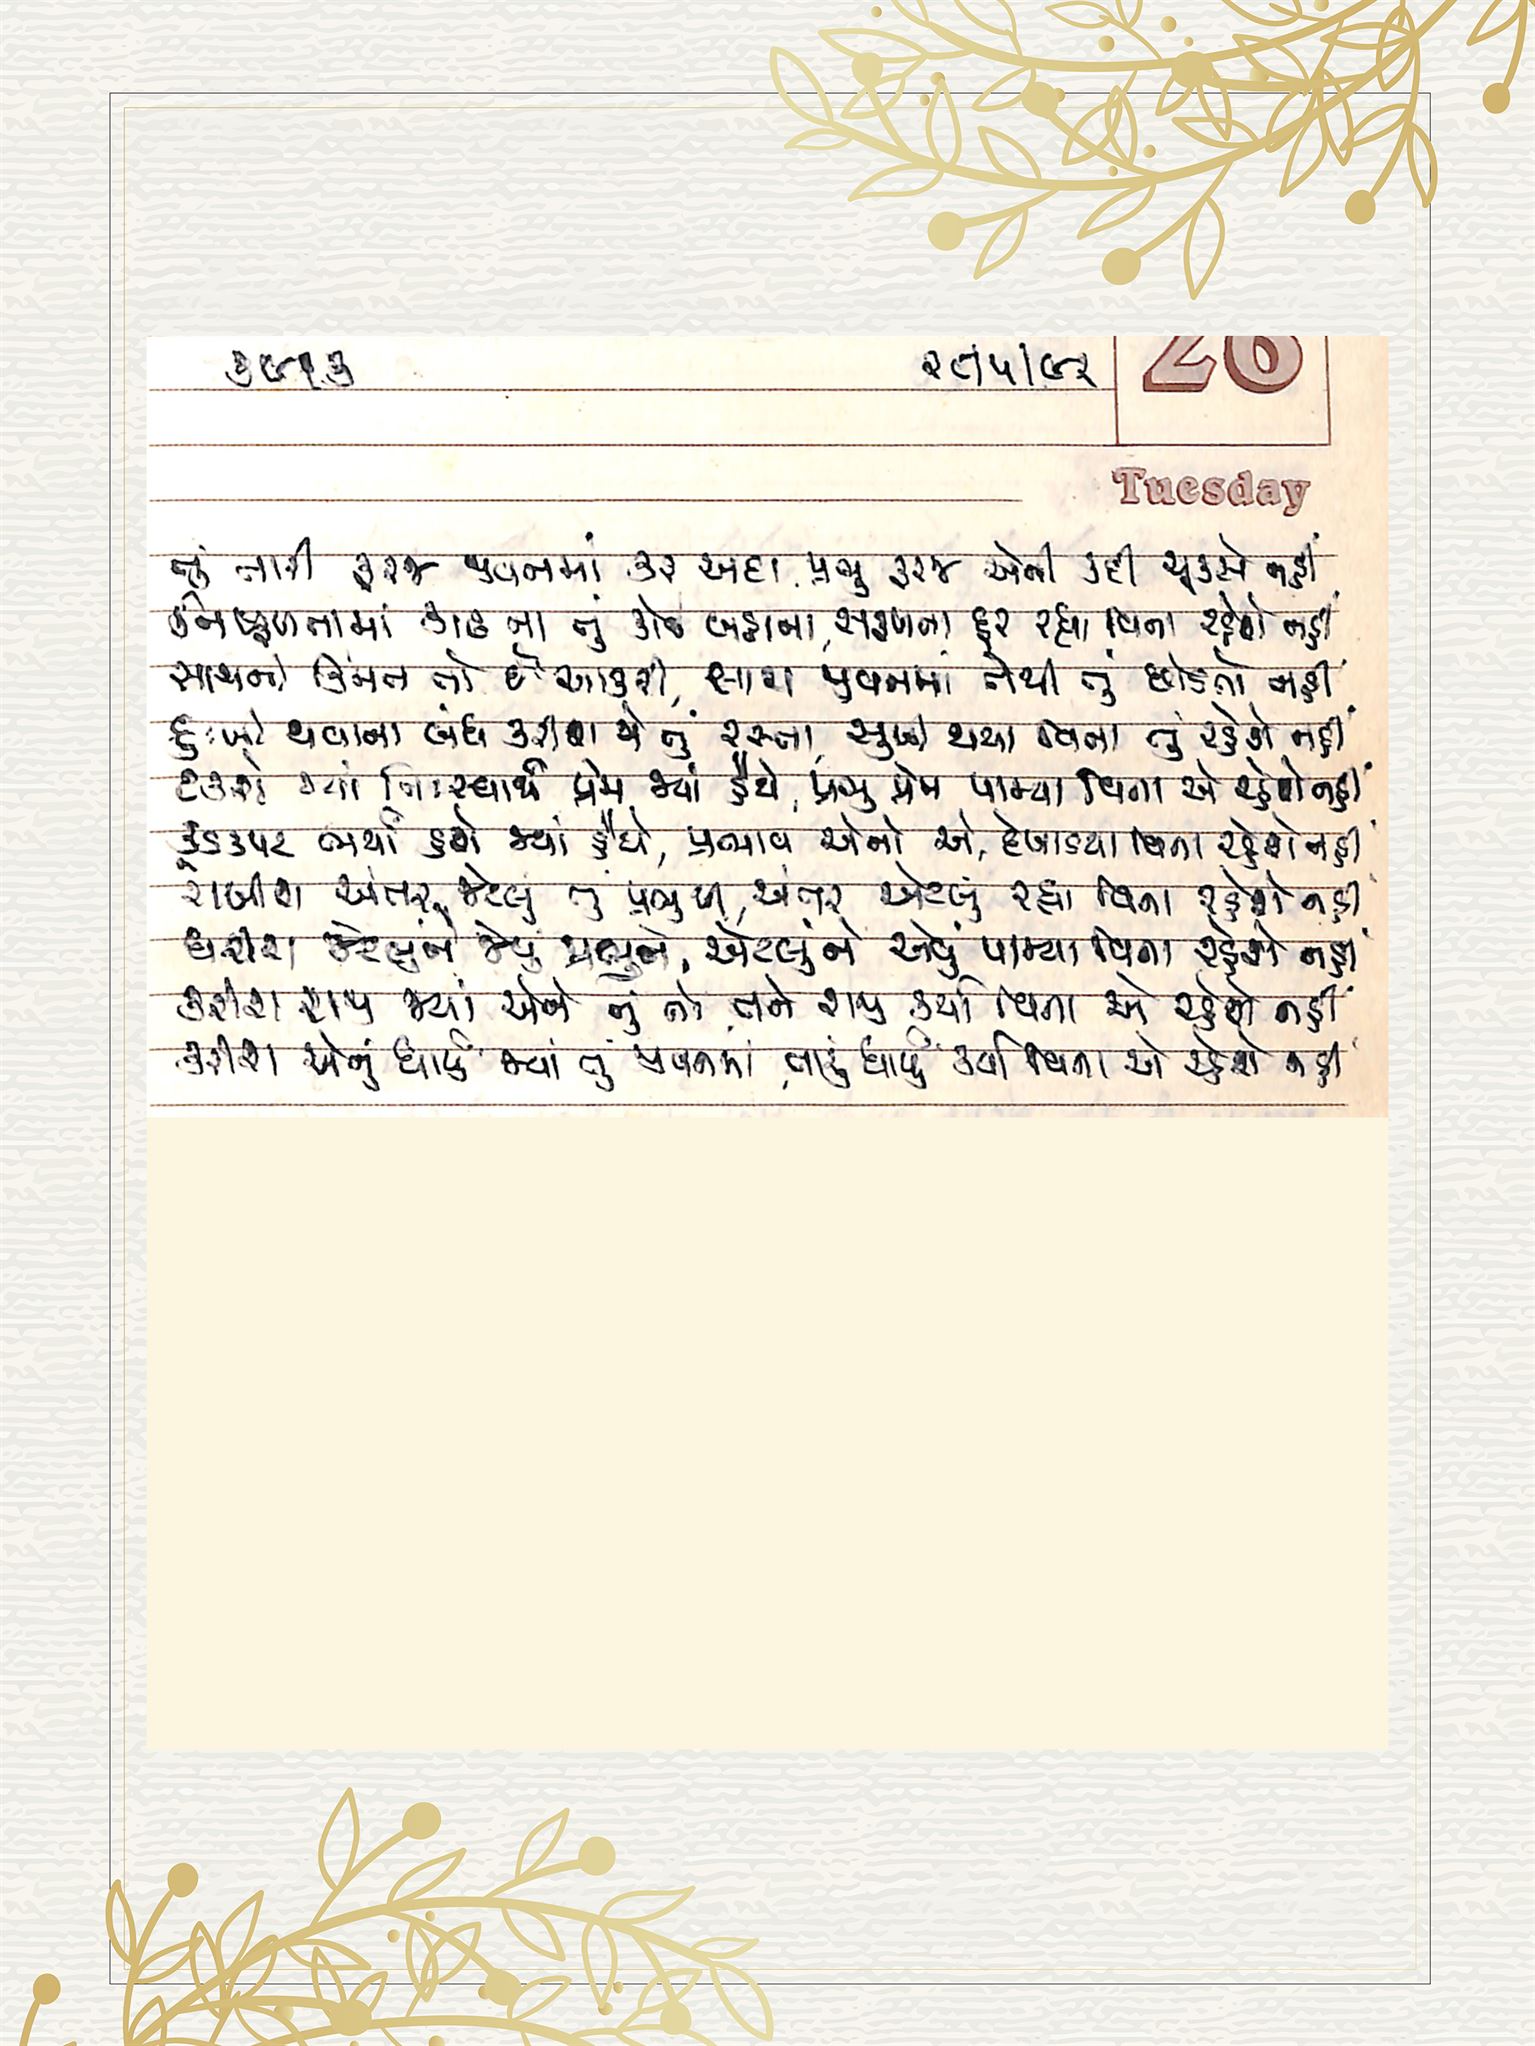 ૩૯૧૩ ૨૮/૫/૯૨
26
Tuesday
તું તારી ફરજ જીવનમાં કર અદા, પ્રભુ ફરજ એની કદી ચૂકશે નહીં
નિષ્ફળતામાં કાઢ ના તું કોઈ બહાના, સફળતા દૂર રહ્યા વિના રહેશે નહીં
સાથની કિંમત તો છે આકરી, સાથ જીવનમાં તેથી તું છોડતો નહીં
દુઃખી થવાના બંધ કરીશ જો તું રસ્તા, સુખી થયા વિના તું રહેશે નહીં
ટકશે જ્યાં નિઃસ્વાર્થ પ્રેમ જ્યાં હૈયે, પ્રભુ પ્રેમ પામ્યા વિના એ રહેશે નહીં
કૂડકપટ ભર્યાં હશે જ્યાં હૈયે, પ્રભાવ એનો એ, દેખાડયા વિના રહેશે નહીં
રાખીશ અંતર જેટલું તું પ્રભુથી, અંતર એટલું રહ્યા વિના રહેશે નહીં
ધરીશ જેટલુંને જેવું પ્રભુને, એટલુંને એવું પામ્યા વિના રહેશે નહીં
કરીશ રાજી જ્યાં એને તું તો, તને રાજી કર્યા વિના એ રહેશે નહીં
કરીશ એનું ધાર્યું જ્યાં તું જીવનમાં, તારું ધાર્યું કર્યા વિના એ રહેશે નહીં